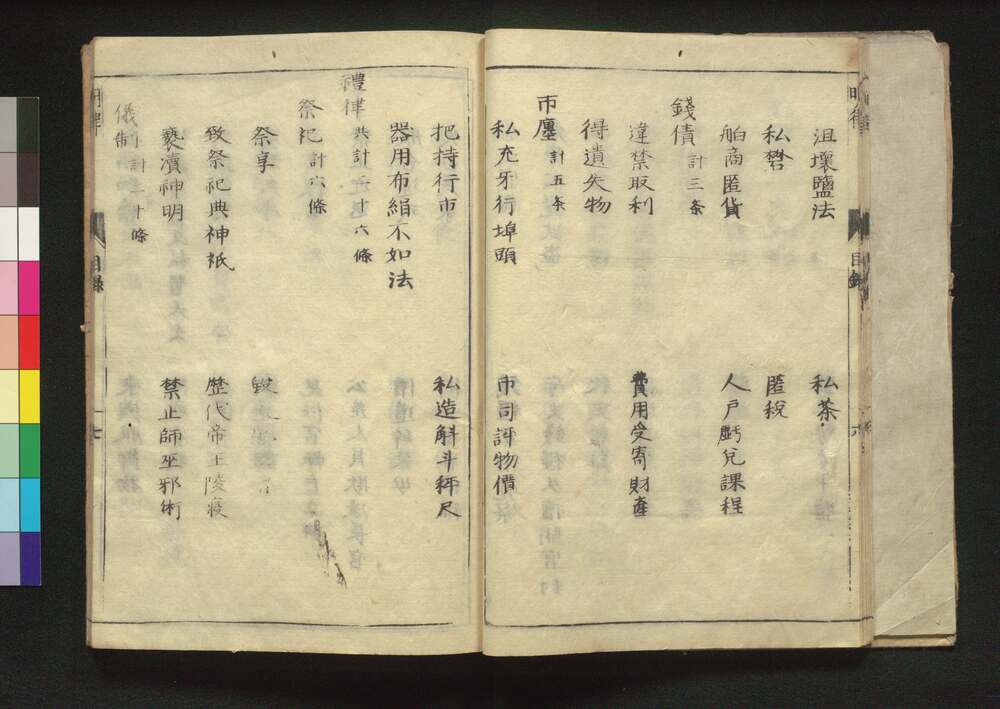 沮壞鹽法　私茶
私礬　匿稅
舶商匿貨　人戸虧兌課程
錢債 計三条
違禁取利　費用受寄財產
得遺失物
市廛 計五条
私充牙行埠頭　市司評物價
把持行市　私造斛斗秤尺
器用布絹不如法
禮律 共計二十六條
祭祀 計六條
祭享　毀
致祭祀典神祇　歷代帝王陵寝
褻瀆神明　禁止師巫邪術
儀制 計二十條
明律
目録
十七
目録